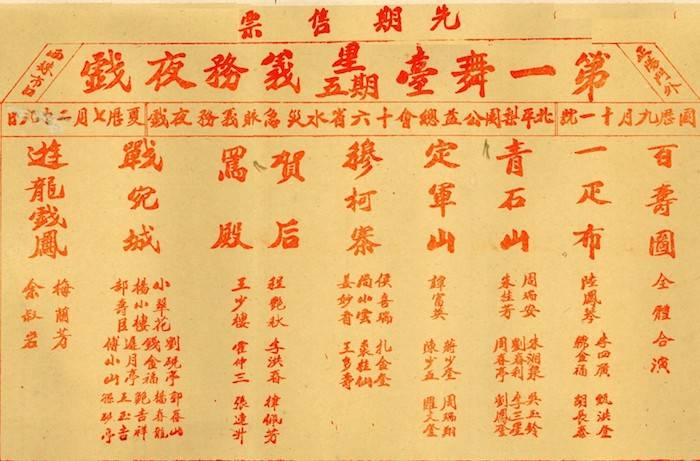 先期售票
正陽門外
第一舞臺星期五義務夜戲
西珠市口
國曆九月十一號
北平梨園公益總會十六省水災急賑義務夜戲
夏曆七月二十九日
百壽圖
全體合演
一疋布
陸鳳琴
李四廣
甄洪奎
胡長泰
青石山
周瑞安
朱桂芳
朱湘泉
劉春利
周春亭
吳玉鈴
李三星
劉鳳奎
定軍山
譚富英
蔣少奎
陳少五
周瑞翔
穆柯寨
侯喜瑞
尚小雲
姜妙香
札金奎
裘桂仙
王多壽
賀后
罵殿
程艷秋
李洪春
律佩芳
王少樓
霍仲三
張連升
戰宛城
小翠花
楊小樓
郝壽臣
劉硯亭
錢金福
遲月亭
傅小山
郭春山
楊春龍
鮑吉祥
王玉吉
孫硯亭
遊龍戲鳳
梅蘭芳
余叔岩